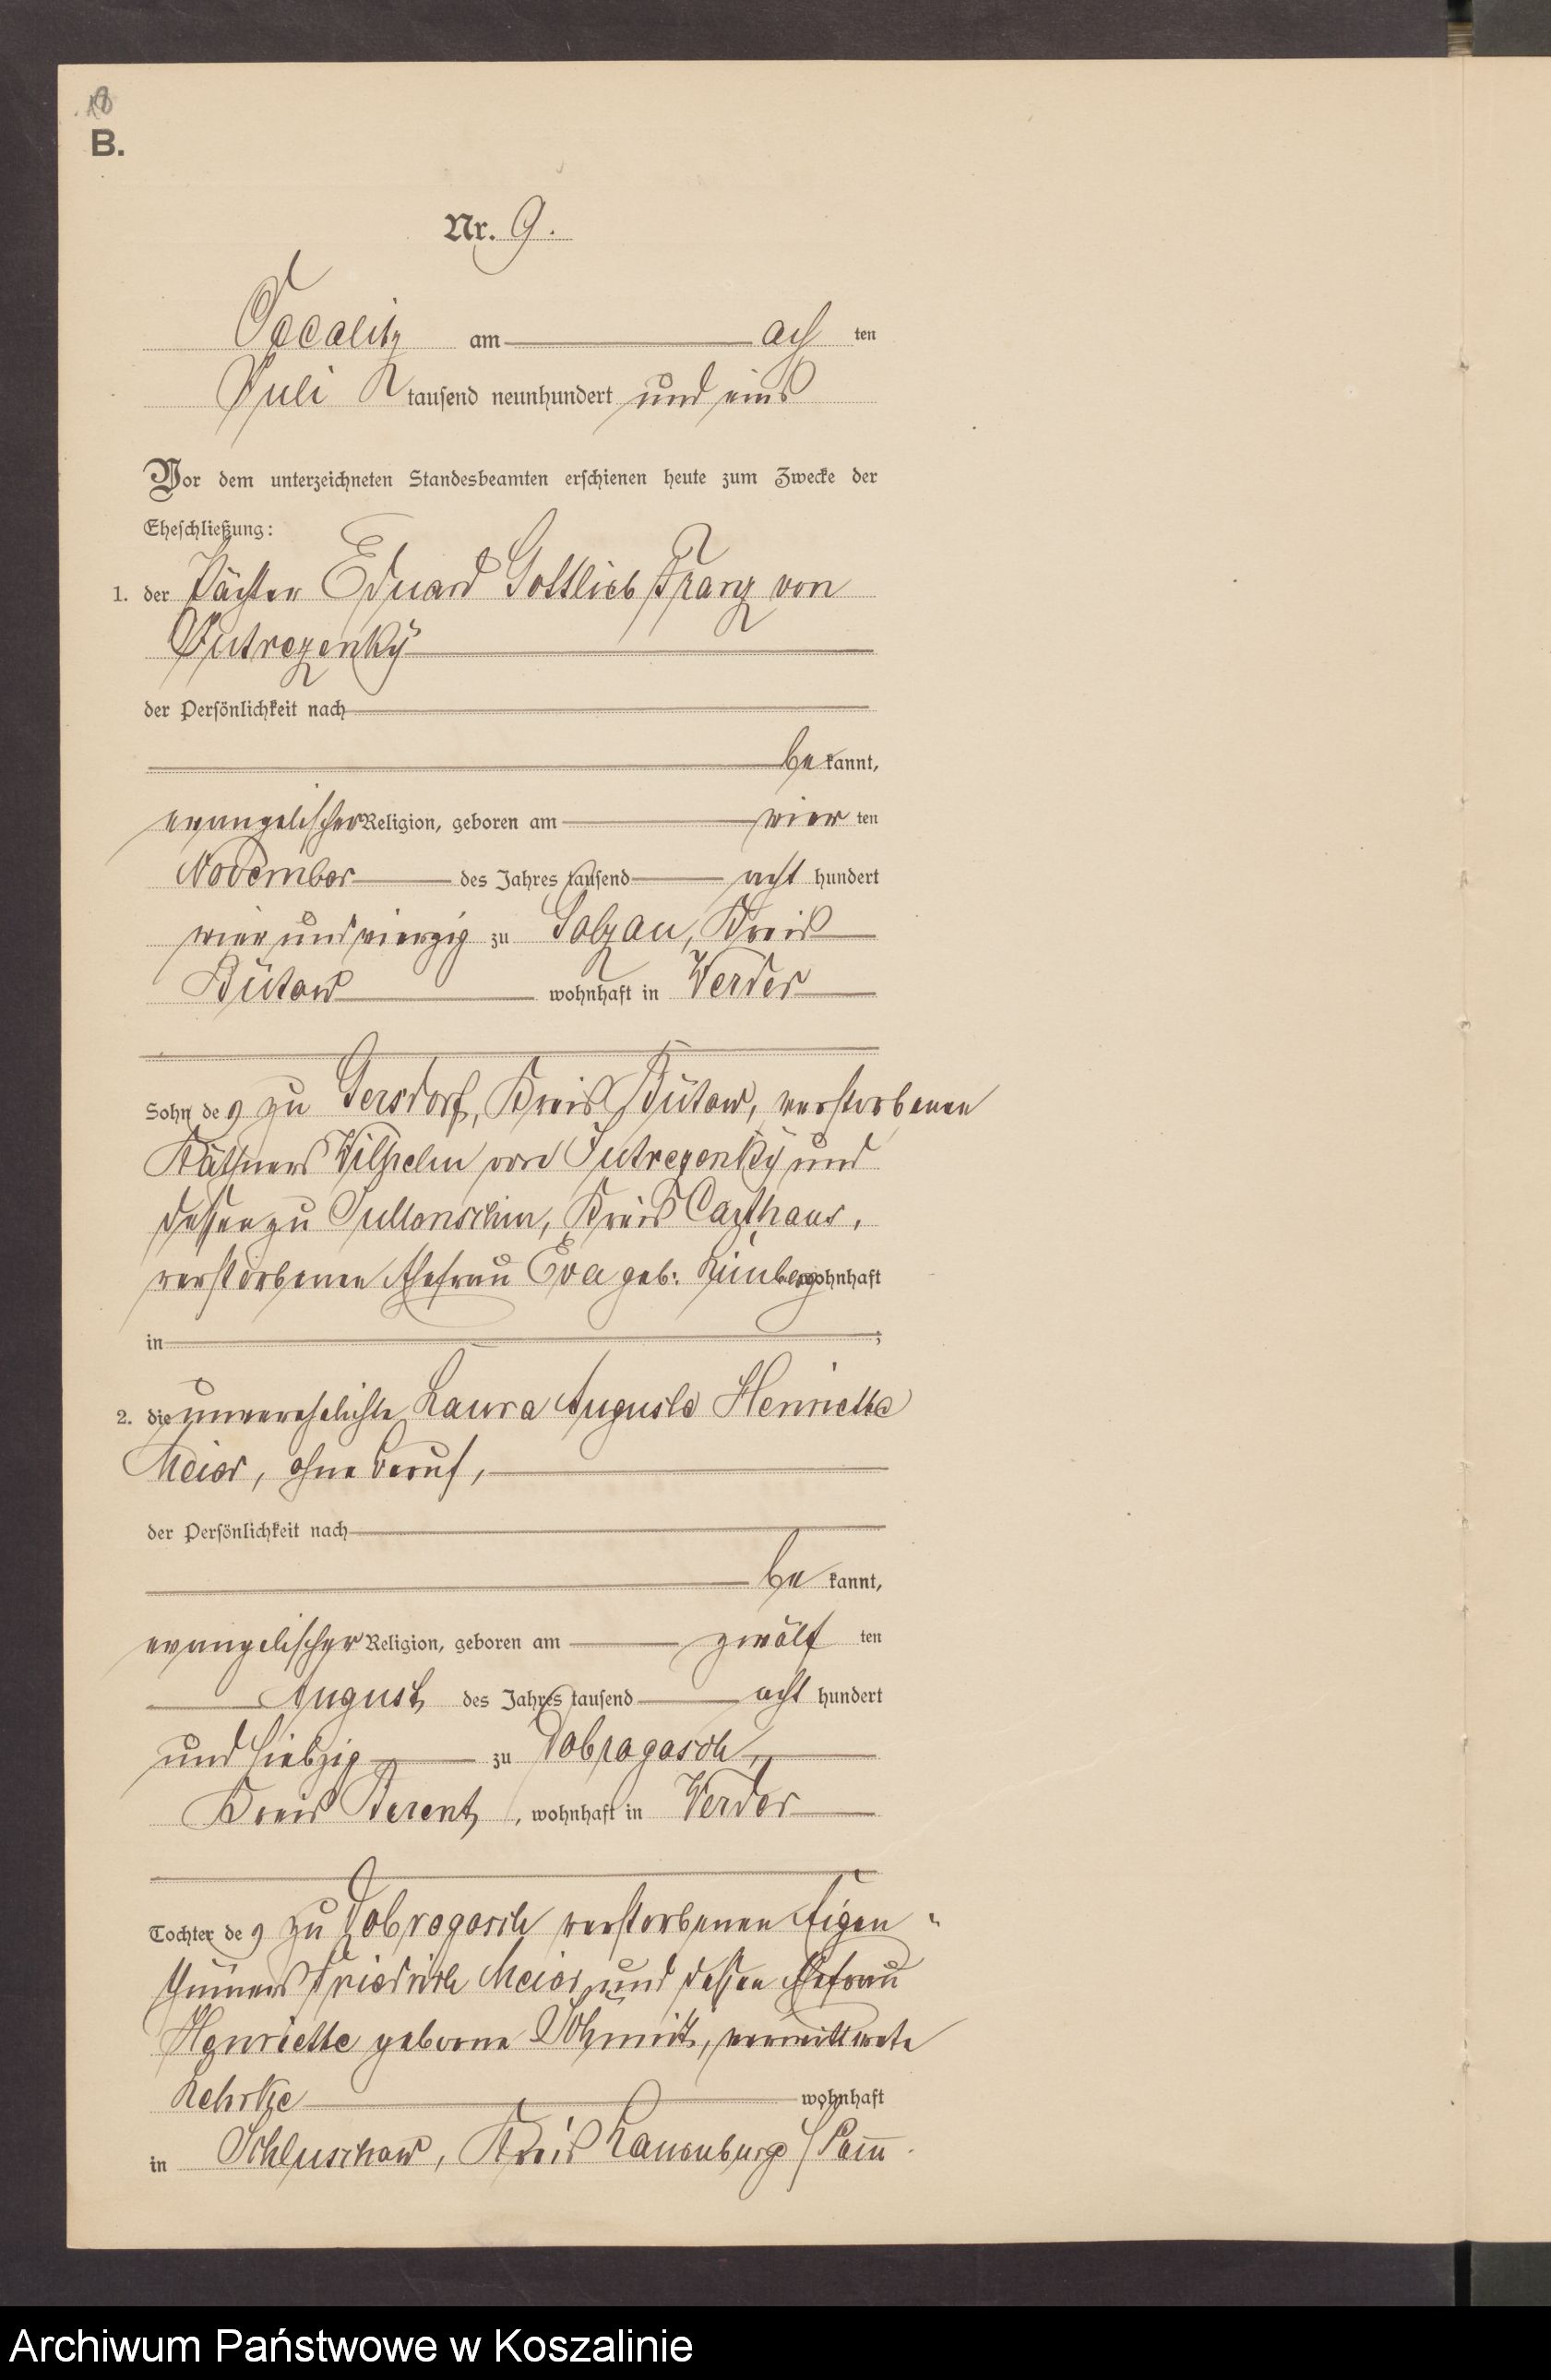 18
B.
Nr. 9.
am ach ten
Juli tausend neunhundert und eins
Vor dem unterzeichneten Standesbeamten erschienen heute zum Zwecke der
Eheschließung:
1. der Pächter Eduard Gottlieb Franz von
Jutrezenky
der Persönlichkeit nach
be kannt,
evangelischer Religion, geboren am vier ten
November des Jahres tausend acht hundert
vier und vierzig zu Kreis
Bütow wohnhaft in Werder
Sohn des zu Gersdorf, Kreis Bütow, verstorbenen
Käthners Wilhelm von Jutrezenky und
dessen zu Kreis Carthaus,
verstorbenen Ehefrau Eva geb: wohnhaft
in ;
2. die unverehelichte Laura Auguste Henriette
Meier, ohne Beruf,
der Persönlichkeit nach
be kannt,
evangelischer Religion, geboren am zwölf ten
August des Jahres tausend acht hundert
und siebzig zu Dobragosch,
Kreis Berent, wohnhaft in Werder
Tochter des zu Dobrogosch verstorbenen Eigen-
thümers Friedrich Meier und dessen Ehefrau
Henriette geborne Schmidt, verwittwete
wohnhaft
in Schluschow, Kreis Lauenburg / Pom̄.
Archiwum Państwowe w Koszalinie